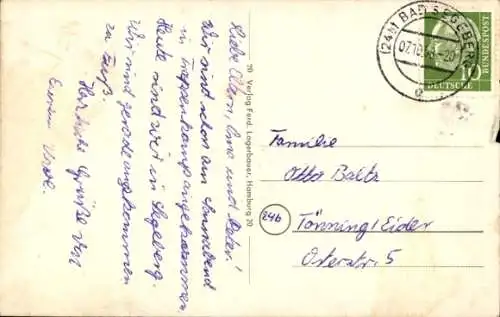 Liebe Eltern, Oma und Peter!
Wir sind schon am Sonnabend
in Trappenkamp angekommen,
Heute sind wir in Segeberg.
Wir sind gerade angekommen
zu Fuß.
Herzliche Grüße von
Eurem Uwe.
20 Verlag Ferd. Lagerbauer, Hamburg 20
(24b) BAD SEGEBERG
07.10.
DEUTSCHE
BUNDESPOST
10
Familie
Otto Baltz
24b
Tönning/Eider
Osterstr. 5